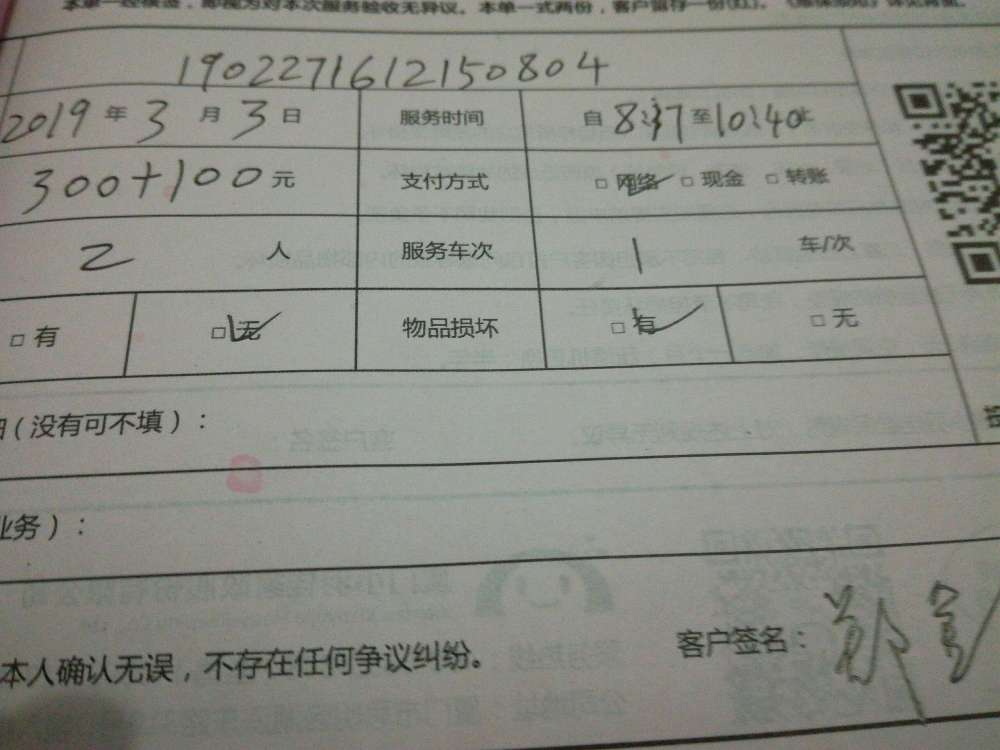 本单一经核签，即视为对本次服务验收无异议。本单一式两份，客户留存一份
1902271612150804
2019 年 3 月 3 日 服务时间 自 8:37 至 10:40 止
300+100 元 支付方式 □ 网络 □ 现金 □ 转账
2 人 服务车次 1 车/次
□ 有 □ 无 物品损坏 □ 有 □ 无
（没有可不填）：
业务）：
本人确认无误，不存在任何争议纠纷。 客户签名：